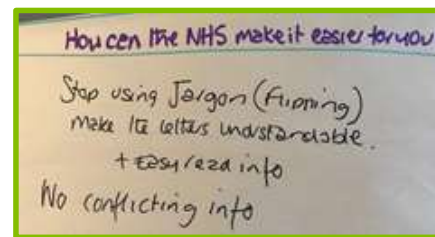 How can the NHS make it easier for you
Stop using Jargon (        )
make the letters understandable.
+ Easy read info
No conflicting info